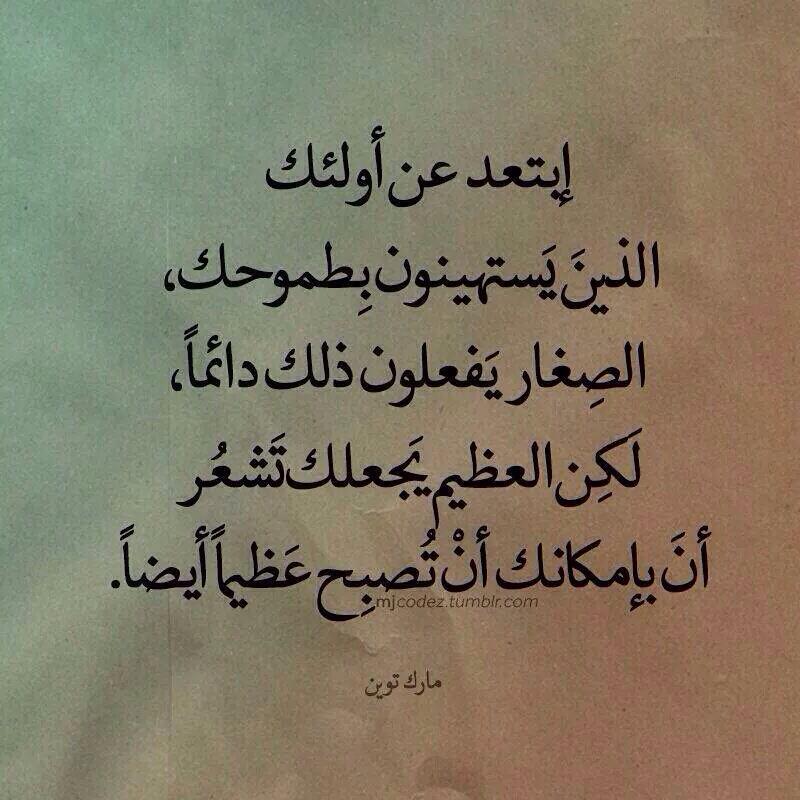 إبتعد عن أولئك
الذينَ يَستهينون بِطموحك،
الصِغار يَفعلون ذلك دائماً،
لَكِن العظيم يَجعلك تَشعُر
أنَ بإمكانك أنْ تُصبِح عَظيماً أيضاً.
mjcodez.tumblr.com
مارك توين